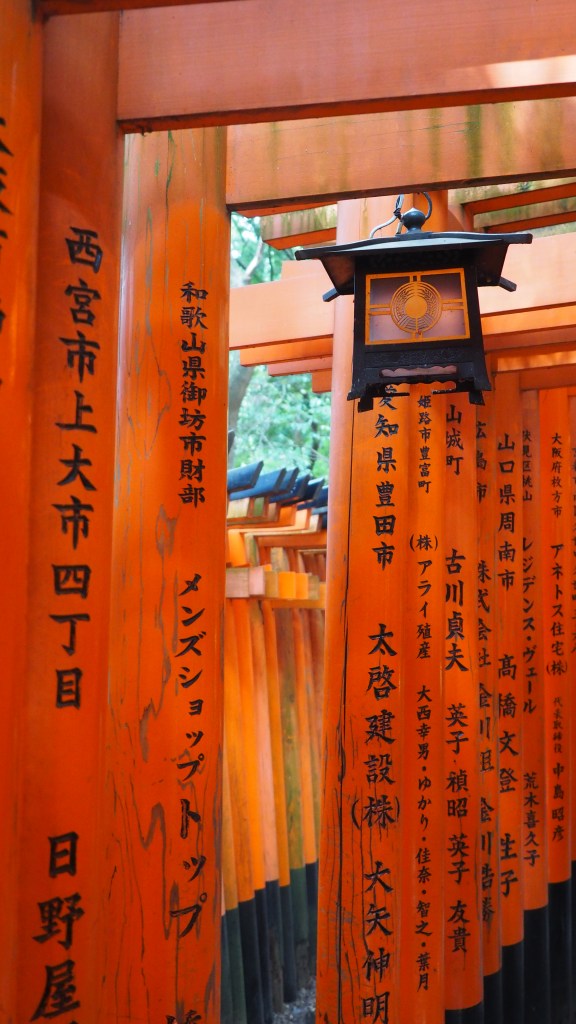 西宮市上大市四丁目 日野屋
和歌山県御坊市財部 メンズショップトップ
愛知県豊田市 太啓建設(株) 大矢伸明
姫路市豊富町 (株)アライ殖産 大西幸男・ゆかり・佳奈・智之・葉月
山城町 古川貞夫 英子 禎昭 英子 友貴
広島市 株式会社 金川組 金川浩勝
山口県周南市 髙橋文登 生子
伏見区桃山 レジデンス・ヴェール 荒木喜久子
大阪府枚方市 アネトス住宅(株) 代表取締役 中島昭彦